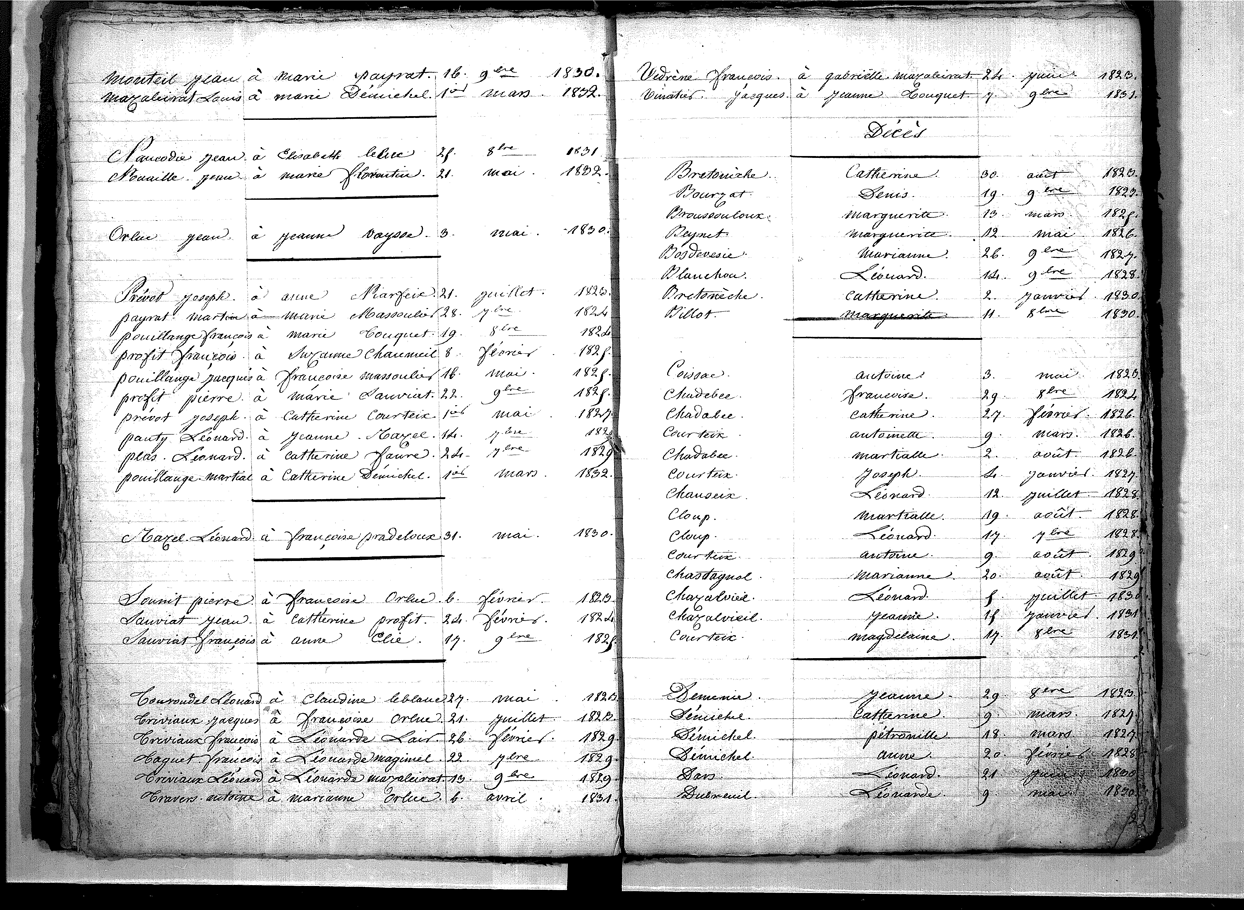 Monteil jean à marie payrat. 16. 9bre 1830.
mazaleirat Louis à marie Démichel. 1er mars 1832.
Naucodie jean à Elisabeth leleu 25. 8bre 1831
Nouaille jean à marie florentin. 21. mai. 1832.
Orluc jean à jeanne vaysse 3. mai. 1830.
Prévot joseph. à anne 21. juillet. 1823.
payrat martin à marie Massoulier 28. 7bre 1824
pouillange françois à marie Couquet. 19. 8bre 1824
profit françois à Suzanne Chaumeil 8. février. 1825.
pouillange jacques à françoise massoulier 16. mai. 1825.
profit pierre à marie Sauviat. 22. 9bre 1825.
prévot joseph. à Catherine Courteix. 1er mai 1827
pauty Léonard. à jeanne. Mazel. 14. 7bre
plas. Léonard. à catherine faure. 24. 7bre 1829
pouillange martial à Catherine Démichel. 1er mars. 1832.
Mazel. Léonard. à françoise pradeloux 31. mai. 1830.
Soumit pierre à françoise Orluc. 6. février. 1823
Sauviat jean. à catherine profit. 24. février. 1824.
Sauviat françois à anne Clié. 17. 9bre 1825
Touroudel Léonard à Claudine leblanc 27. mai 1823
Triviaux jacques à françoise Orluc. 21. juillet. 1823.
Triviaux françois à Léonarde Lair. 26. février. 1829.
Taquet françois à Léonarde magimel. 22 7bre 1829.
Triviaux Léonard à Léonarde mazaleirat. 13. 9bre 1829.
Travers antoine à marianne Orluc. 6. avril. 1831.
Védrène françois. à gabrielle mazaleirat 24. juin 1823.
Vinatier jacques. à jeanne Couquet 7. 9bre 1831.
Décès
Bretonèche. Catherine. 30. août 1823.
Bourzat. Denis. 19. 9bre 1823.
Brousouloux. marguerite. 13. mars. 1825.
Beynet marguerite. 12. mai 1826.
Bosdevesie Marianne. 26. 9bre 1827.
Blanchou. Léonard 14. 9bre 1828.
Bretonèche. Catherine. 2. janvier. 1830.
Billot. marguerite. 11. 8bre 1830.
Coissac. antoine. 3. mai. 1823.
Chadebec françoise. 29. 8bre 1824
Chadabec. catherine. 27. février. 1826.
Courteix antoinette. 9. mars. 1826.
Chadabec. martialle. 2. août. 1826.
Courteix. joseph. 4. janvier. 1827.
Chauseix. Léonard. 12. juillet. 1828.
Cloup. martialle. 19. août. 1828.
Cloup. Léonard. 17. 7bre 1828.
Courteix. antoine. 9. août. 1829.
Chastagnol. marianne. 20. août. 1829
Chazalvieil. Léonard. 5. juillet. 1830
Chazalvieil. jeanne. 15. janvier. 1831.
Courteix. magdelaine. 17. 8bre 1831.
Demenie. jeanne. 29. 8bre 1823.
Démichel. Catherine. 9. mars. 1827.
Démichel. pétronille 18. mars 1827.
Démichel anne 20. février 1828.
Dars. Léonard. 21. juin 1830
Dubreuil. Léonarde 9. mai. 1830.